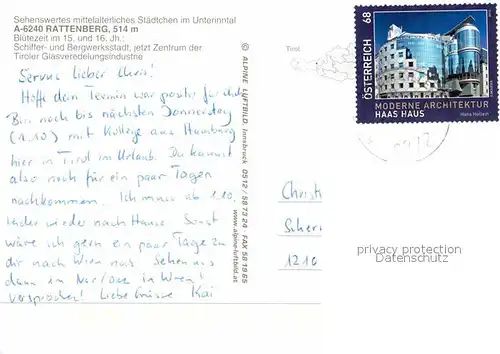 Sehenswertes mittelalterliches Städtchen im Unterinntal
A-6240 RATTENBERG, 514 m
Blütezeit im 15. und 16. Jh.:
Schiffer- und Bergwerksstadt, jetzt Zentrum der
Tiroler Glasveredelungsindustrie
Servus lieber Chris!
Hoffe dein Termin war positiv für dich.
Bin noch bis nächsten Donnerstag
(1.10) mit Kollege aus Hamburg
hier in Tirol im Urlaub. Du kannst
also noch für ein paar Tagen
nachkommen. Ich muss ab 1.10.
leider wieder nach Hause. Sonst
wäre ich gern ein paar Tage zu
dir nach Wien. Sehen uns
dann im Nov/Dez in Wien!
versprochen! Liebe Grüsse Kai
© ALPINE LUFTBILD, Innsbruck 0512 / 58 73 24 FAX 58 19 65
www.alpine-luftbild.at
Tirol
68
ÖSTERREICH
MODERNE ARCHITEKTUR
HAAS HAUS
Hans Hollein
Christi
Scherr
1210
privacy protection
Datenschutz